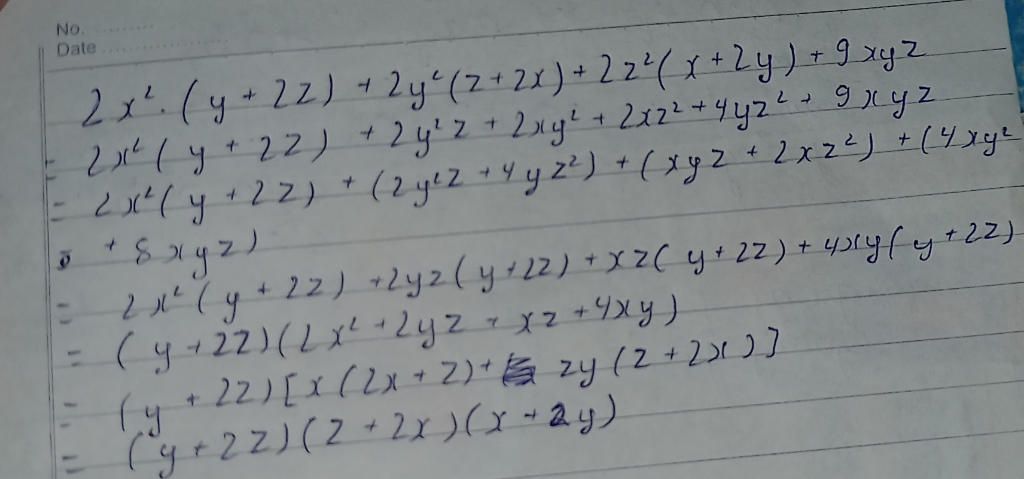 No.
Date
2x². (y + 2z) + 2y² (z + 2x) + 2z² (x + 2y) + 9xyz
= 2x² (y + 2z) + 2y²z + 2xy² + 2xz² + 4yz² + 9xyz
= 2x² (y + 2z) + (2y²z + 4yz²) + (xyz + 2xz²) + (4xy²
+ 8xyz)
= 2x² (y + 2z) + 2yz (y + 2z) + xz (y + 2z) + 4xy (y + 2z)
= (y + 2z) (2x² + 2yz + xz + 4xy)
= (y + 2z) [x (2x + z) + 2y (z + 2x)]
= (y + 2z) (z + 2x) (x + 2y)